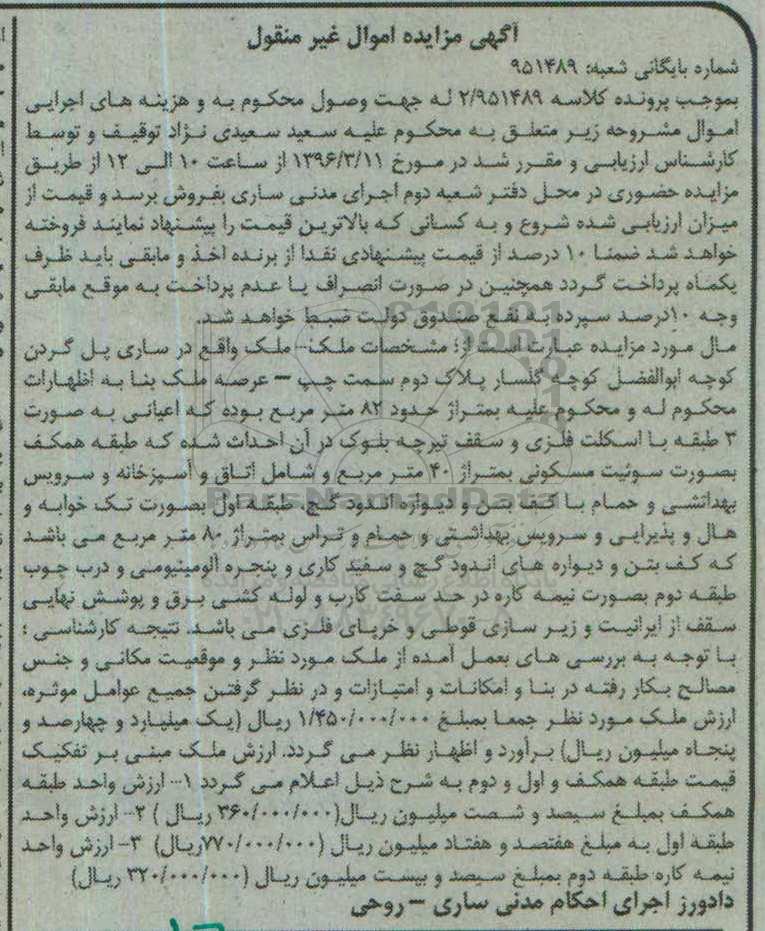 آگهی مزایده اموال غیر منقول
شماره بایگانی شعبه: ۹۵۱۴۸۹
بموجب پرونده کلاسه ۲/۹۵۱۴۸۹ له جهت وصول محکوم به و هزینه های اجرایی
اموال مشروحه زیر متعلق به محکوم علیه سعید سعیدی نژاد توقیف و توسط
کارشناس ارزیابی و مقرر شد در مورخ ۱۳۹۶/۳/۱۱ از ساعت ۱۰ الی ۱۲ از طریق
مزایده حضوری در محل دفتر شعبه دوم اجرای مدنی ساری بفروش برسد و قیمت از
میزان ارزیابی شده شروع و به کسانی که بالاترین قیمت را پیشنهاد نمایند فروخته
خواهد شد ضمنا ۱۰ درصد از قیمت پیشنهادی نقدا از برنده اخذ و مابقی باید ظرف
یکماه پرداخت گردد همچنین در صورت انصراف یا عدم پرداخت به موقع مابقی
وجه ۱۰درصد سپرده به نفع صندوق دولت ضبط خواهد شد.
مال مورد مزایده عبارت است از: مشخصات ملک-- ملک واقع در ساری پل گردن
کوچه ابوالفضل کوچه گلسار پلاک دوم سمت چپ – عرصه ملک بنا به اظهارات
محکوم له و محکوم علیه بمتراژ حدود ۸۲ متر مربع بوده که اعیانی به صورت
۳ طبقه با اسکلت فلزی و سقف تیرچه بلوک در آن احداث شده که طبقه همکف
بصورت سوئیت مسکونی بمتراژ ۴۰ متر مربع و شامل اتاق و آسپزخانه و سرویس
بهداشتی و حمام با کف بتن و دیواره اندود گچ. طبقه اول بصورت تک خوابه و
هال و پذیرایی و سرویس بهداشتی و حمام و تراس بمتراژ ۸۰ متر مربع می باشد
که کف بتن و دیواره های اندود گچ و سفید کاری و پنجره آلومینیومی و درب چوب
طبقه دوم بصورت نیمه کاره در حد سفت کارب و لوله کشی برق و پوشش نهایی
سقف از ایرانیت و زیر سازی قوطی و خرپای فلزی می باشد. نتیجه کارشناسی ؛
با توجه به بررسی های بعمل آمده از ملک مورد نظر و موقعیت مکانی و جنس
مصالح بکار رفته در بنا و امکانات و امتیازات و در نظر گرفتن جمیع عوامل موثره،
ارزش ملک مورد نظر جمعا بمبلغ ۱/۴۵۰/۰۰۰/۰۰۰ ریال (یک میلیارد و چهارصد و
پنجاه میلیون ریال) برآورد و اظهار نظر می گردد. ارزش ملک مبنی بر تفکیک
قیمت طبقه همکف و اول و دوم به شرح ذیل اعلام می گردد ۱-- ارزش واحد طبقه
همکف بمبلغ سیصد و شصت میلیون ریال(۳۶۰/۰۰۰/۰۰۰ ریال ) ۲-- ارزش واحد
طبقه اول به مبلغ هفتصد و هفتاد میلیون ریال (۷۷۰/۰۰۰/۰۰۰ریال) ۳- ارزش واحد
نیمه کاره طبقه دوم بمبلغ سیصد و بیست میلیون ریال (۳۲۰/۰۰۰/۰۰۰ ریال)
دادورز اجرای احکام مدنی ساری – روحی
ParsNamadData